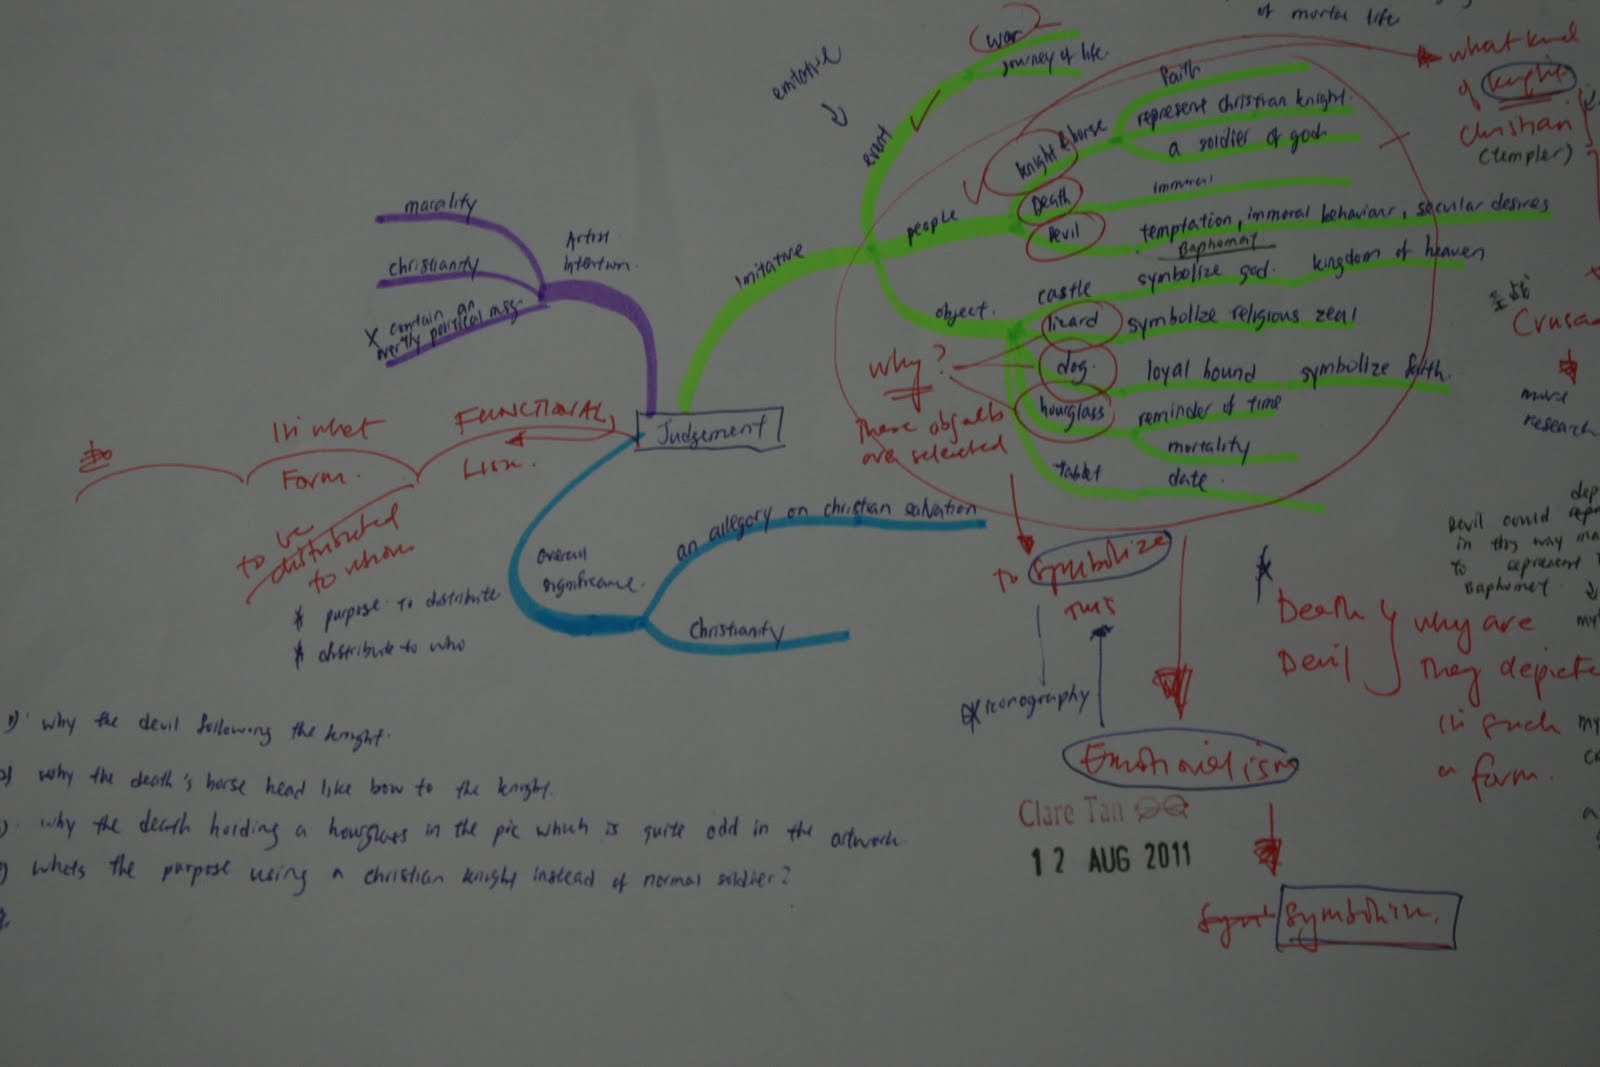 of mortal life
war
journey of life.
emitative
event
what kind
of knight.
christian
(templer)
faith
represent christian knight.
a soldier of god
knight & horse
people
Death
immoral
Devil
temptation, immoral behaviour, secular desires
Baphomet
castle
symbolize god.
kingdom of heaven
object.
lizard
symbolize religious zeal
dog.
loyal hound
symbolize faith.
hourglass
reminder of time
mortality
Tablet
date.
Imitative
Why?
These objects
are selected
Crusa
more
research
morality
christianity
X contain an
overtly political msg.
Artist
intention.
Judgement
FUNCTIONAL
LISM.
In what
Form.
to be
distributed
to whom
* purpose to distribute
* distribute to who
overall
significance.
an allegory on christian salvation
Christianity
to symbolize
this
* iconography
Emotionalism
Clare Tan
12 AUG 2011
symbolism.
dep
Devil could repr
in this way ma
to represent
Baphomet.
*
Death
Devil
why are
they depicte
in such
a form.
my
my
1). why the devil following the knight.
why the death's horse head like bow to the knight.
why the death holding a hourglass in the pic which is quite odd in the artwork
whats the purpose using a christian knight instead of normal soldier?